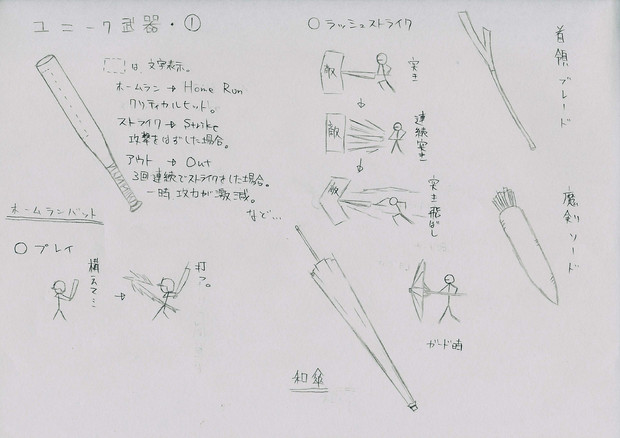 ユニーク武器・①
は、文字表示。
ホームラン→Home Run
クリティカルヒット。
ストライク→Strike
攻撃をはずした場合。
アウト→Out
3回連続でストライクをした場合。
一時攻力が激減。
など…
ホームランバット
○プレイ
構えて…
打つ。
○ラッシュストライク
敵
突き
敵
連続突き
敵
突き飛ばし
和傘
ガード時
首領ブレード
魔剣ソード